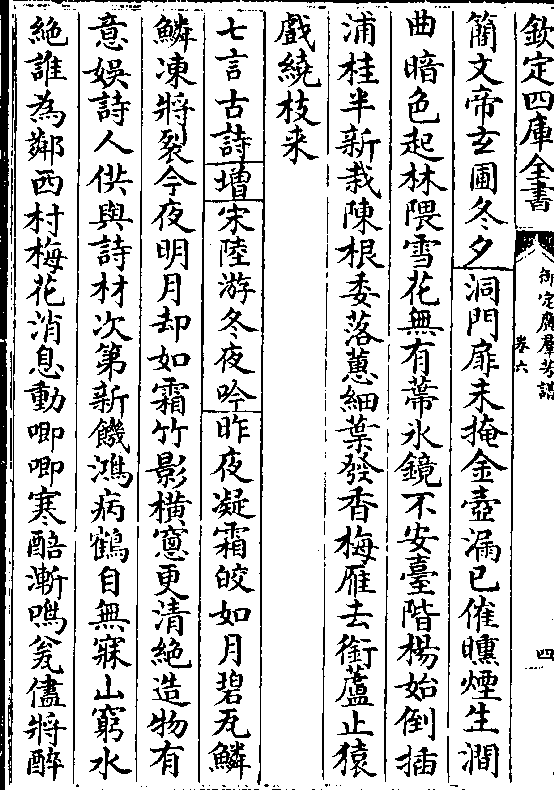 欽定四庫全書
御定廣羣芳譜
卷六
四
簡文帝玄圃冬夕洞門扉未掩金壺漏已催曛煙生澗
曲暗色起林隈雪花無有蒂氷鏡不安臺階楊始倒插
浦桂半新栽陳根委落蕙細葉發香梅雁去銜蘆止猿
戲繞枝来
七言古詩增宋陸游冬夜吟昨夜凝霜皎如月碧瓦鱗
鱗凍將裂今夜明月却如霜竹影橫窻更清絶造物有
意娛詩人供與詩材次第新饑鴻病鶴自無寐山窮水
絶誰為鄰西村梅花消息動唧唧寒醅漸鳴瓮儘將醉